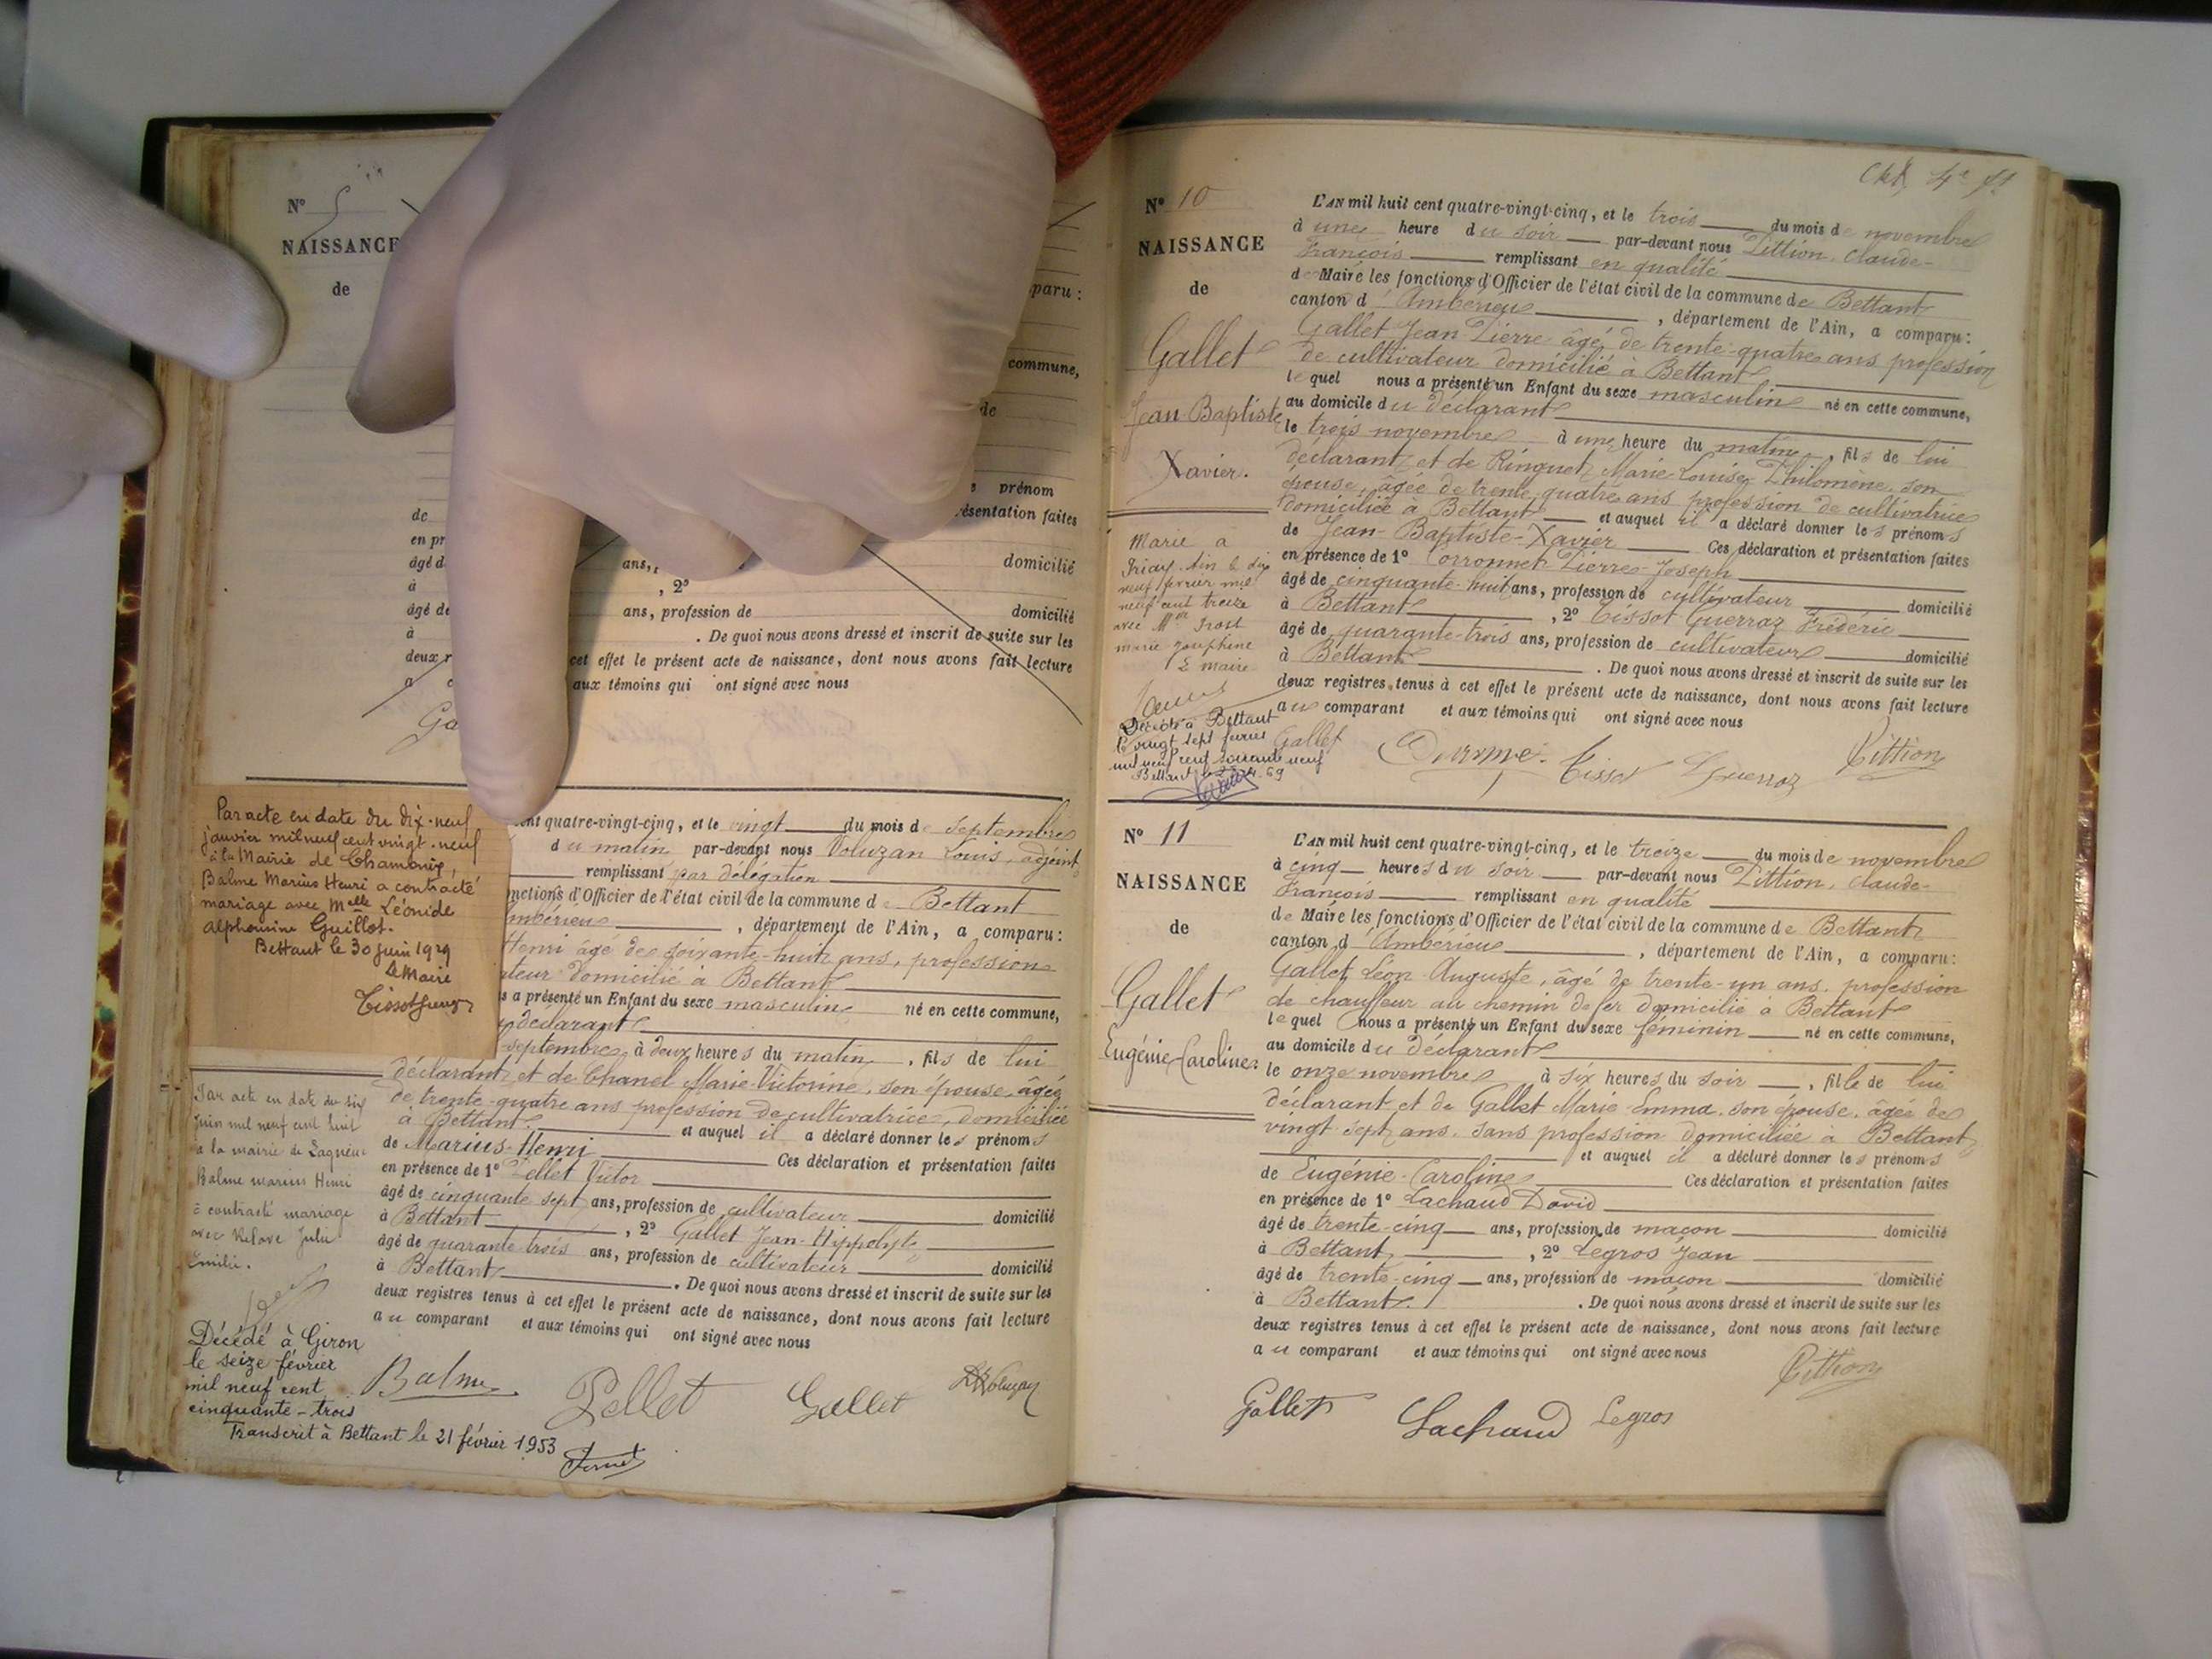 N° 5
NAISSANCE
de
paru :
commune,
de
prénom
de
ésentation faites
en pr
âgé d
ans,
domicilié
à
, 2°
âgé de
ans, profession de
domicilié
à
. De quoi nous avons dressé et inscrit de suite sur les
deux r
cet effet le présent acte de naissance, dont nous avons fait lecture
a c
aux témoins qui ont signé avec nous
Ga
Par acte en date du dix-neuf
janvier mil neuf cent vingt-neuf
à la Mairie de Chamonix,
Balme Marius Henri a contracté
mariage avec Melle Léonide
alphonsine Guillot.
Bettant le 30 juin 1929
Le Maire
Tissot Guerraz
ent quatre-vingt-cinq, et le vingt du mois de septembre
du matin par-devant nous Voluzan Louis, adjoint
remplissant par délégation
onctions d'Officier de l'état civil de la commune de Bettant
mbérieu , département de l'Ain, a comparu :
Henri âgé de soixante-huit ans, profession
ateur domicilié à Bettant
s a présenté un Enfant du sexe masculin né en cette commune,
déclarant
septembre, à deux heures du matin , fils de lui
déclarant et de Chanel Marie-Victorine, son épouse, âgée
de trente-quatre ans profession de cultivatrice, domiciliée
à Bettant et auquel il a déclaré donner les prénoms
de Marius-Henri Ces déclaration et présentation faites
en présence de 1° Pellet Victor
âgé de cinquante sept ans, profession de cultivateur domicilié
à Bettant , 2° Gallet Jean-Hippolyte
âgé de quarante trois ans, profession de cultivateur domicilié
à Bettant . De quoi nous avons dressé et inscrit de suite sur les
deux registres tenus à cet effet le présent acte de naissance, dont nous avons fait lecture
au comparant et aux témoins qui ont signé avec nous
Par acte en date du six
juin mil neuf cent huit
à la mairie de
Balme marius Henri
a contracté mariage
avec Julie
Emilie.
Décédé à Giron
le seize février
mil neuf cent
cinquante-trois
Transcrit à Bettant le 21 février 1953
Balme Pellet Gallet Voluzan
Ckk 4e ft
N° 10
NAISSANCE
de
Gallet
Jean Baptiste
Xavier.
L'AN mil huit cent quatre-vingt-cinq, et le trois du mois de novembre
à une heure du soir par-devant nous Pittion, Claude-
François remplissant en qualité
de Maire les fonctions d'Officier de l'état civil de la commune de Bettant
canton d'Ambérieu , département de l'Ain, a comparu :
Gallet Jean-Pierre âgé de trente-quatre ans profession
de cultivateur domicilié à Bettant
lequel nous a présenté un Enfant du sexe masculin né en cette commune,
au domicile du déclarant
le trois novembre à une heure du matin , fils de lui
déclarant et de Ringuet Marie-Louise Philomène, son
épouse, âgée de trente quatre ans profession de cultivatrice
domiciliée à Bettant et auquel il a déclaré donner les prénoms
de Jean-Baptiste-Xavier Ces déclaration et présentation faites
en présence de 1° Corronnet Pierre-Joseph
âgé de cinquante-huit ans, profession de cultivateur domicilié
à Bettant , 2° Tissot Guerraz Frédéric
âgé de quarante-trois ans, profession de cultivateur domicilié
à Bettant . De quoi nous avons dressé et inscrit de suite sur les
deux registres tenus à cet effet le présent acte de naissance, dont nous avons fait lecture
au comparant et aux témoins qui ont signé avec nous
Marié a
Priay Ain le dix
neuf fevrier mil
neuf cent treize
avec Mlle Prost
marie josephine
Le maire
Décédé à Bettant
le vingt sept fevrier
mil neuf cent soixante neuf
Gallet Tissot Guerraz Pittion
N° 11
NAISSANCE
de
Gallet
Eugénie-Caroline
L'AN mil huit cent quatre-vingt-cinq, et le treize du mois de novembre
à cinq heures du soir par-devant nous Pittion, Claude-
François remplissant en qualité
de Maire les fonctions d'Officier de l'état civil de la commune de Bettant
canton d'Ambérieu , département de l'Ain, a comparu :
Gallet Léon-Auguste, âgé de trente-un ans, profession
de chauffeur au chemin de fer domicilié à Bettant
lequel nous a présenté un Enfant du sexe féminin né en cette commune,
au domicile du déclarant
le onze novembre à six heures du soir , fille de lui
déclarant et de Gallet Marie-Emma, son épouse, âgée de
vingt-sept ans, sans profession domiciliée à Bettant
et auquel il a déclaré donner les prénoms
de Eugénie-Caroline Ces déclaration et présentation faites
en présence de 1° Lachaud David
âgé de trente-cinq ans, profession de maçon domicilié
à Bettant , 2° Legros Jean
âgé de trente-cinq ans, profession de maçon domicilié
à Bettant. . De quoi nous avons dressé et inscrit de suite sur les
deux registres tenus à cet effet le présent acte de naissance, dont nous avons fait lecture
au comparant et aux témoins qui ont signé avec nous
Pittion
Gallet Lachaud Legros